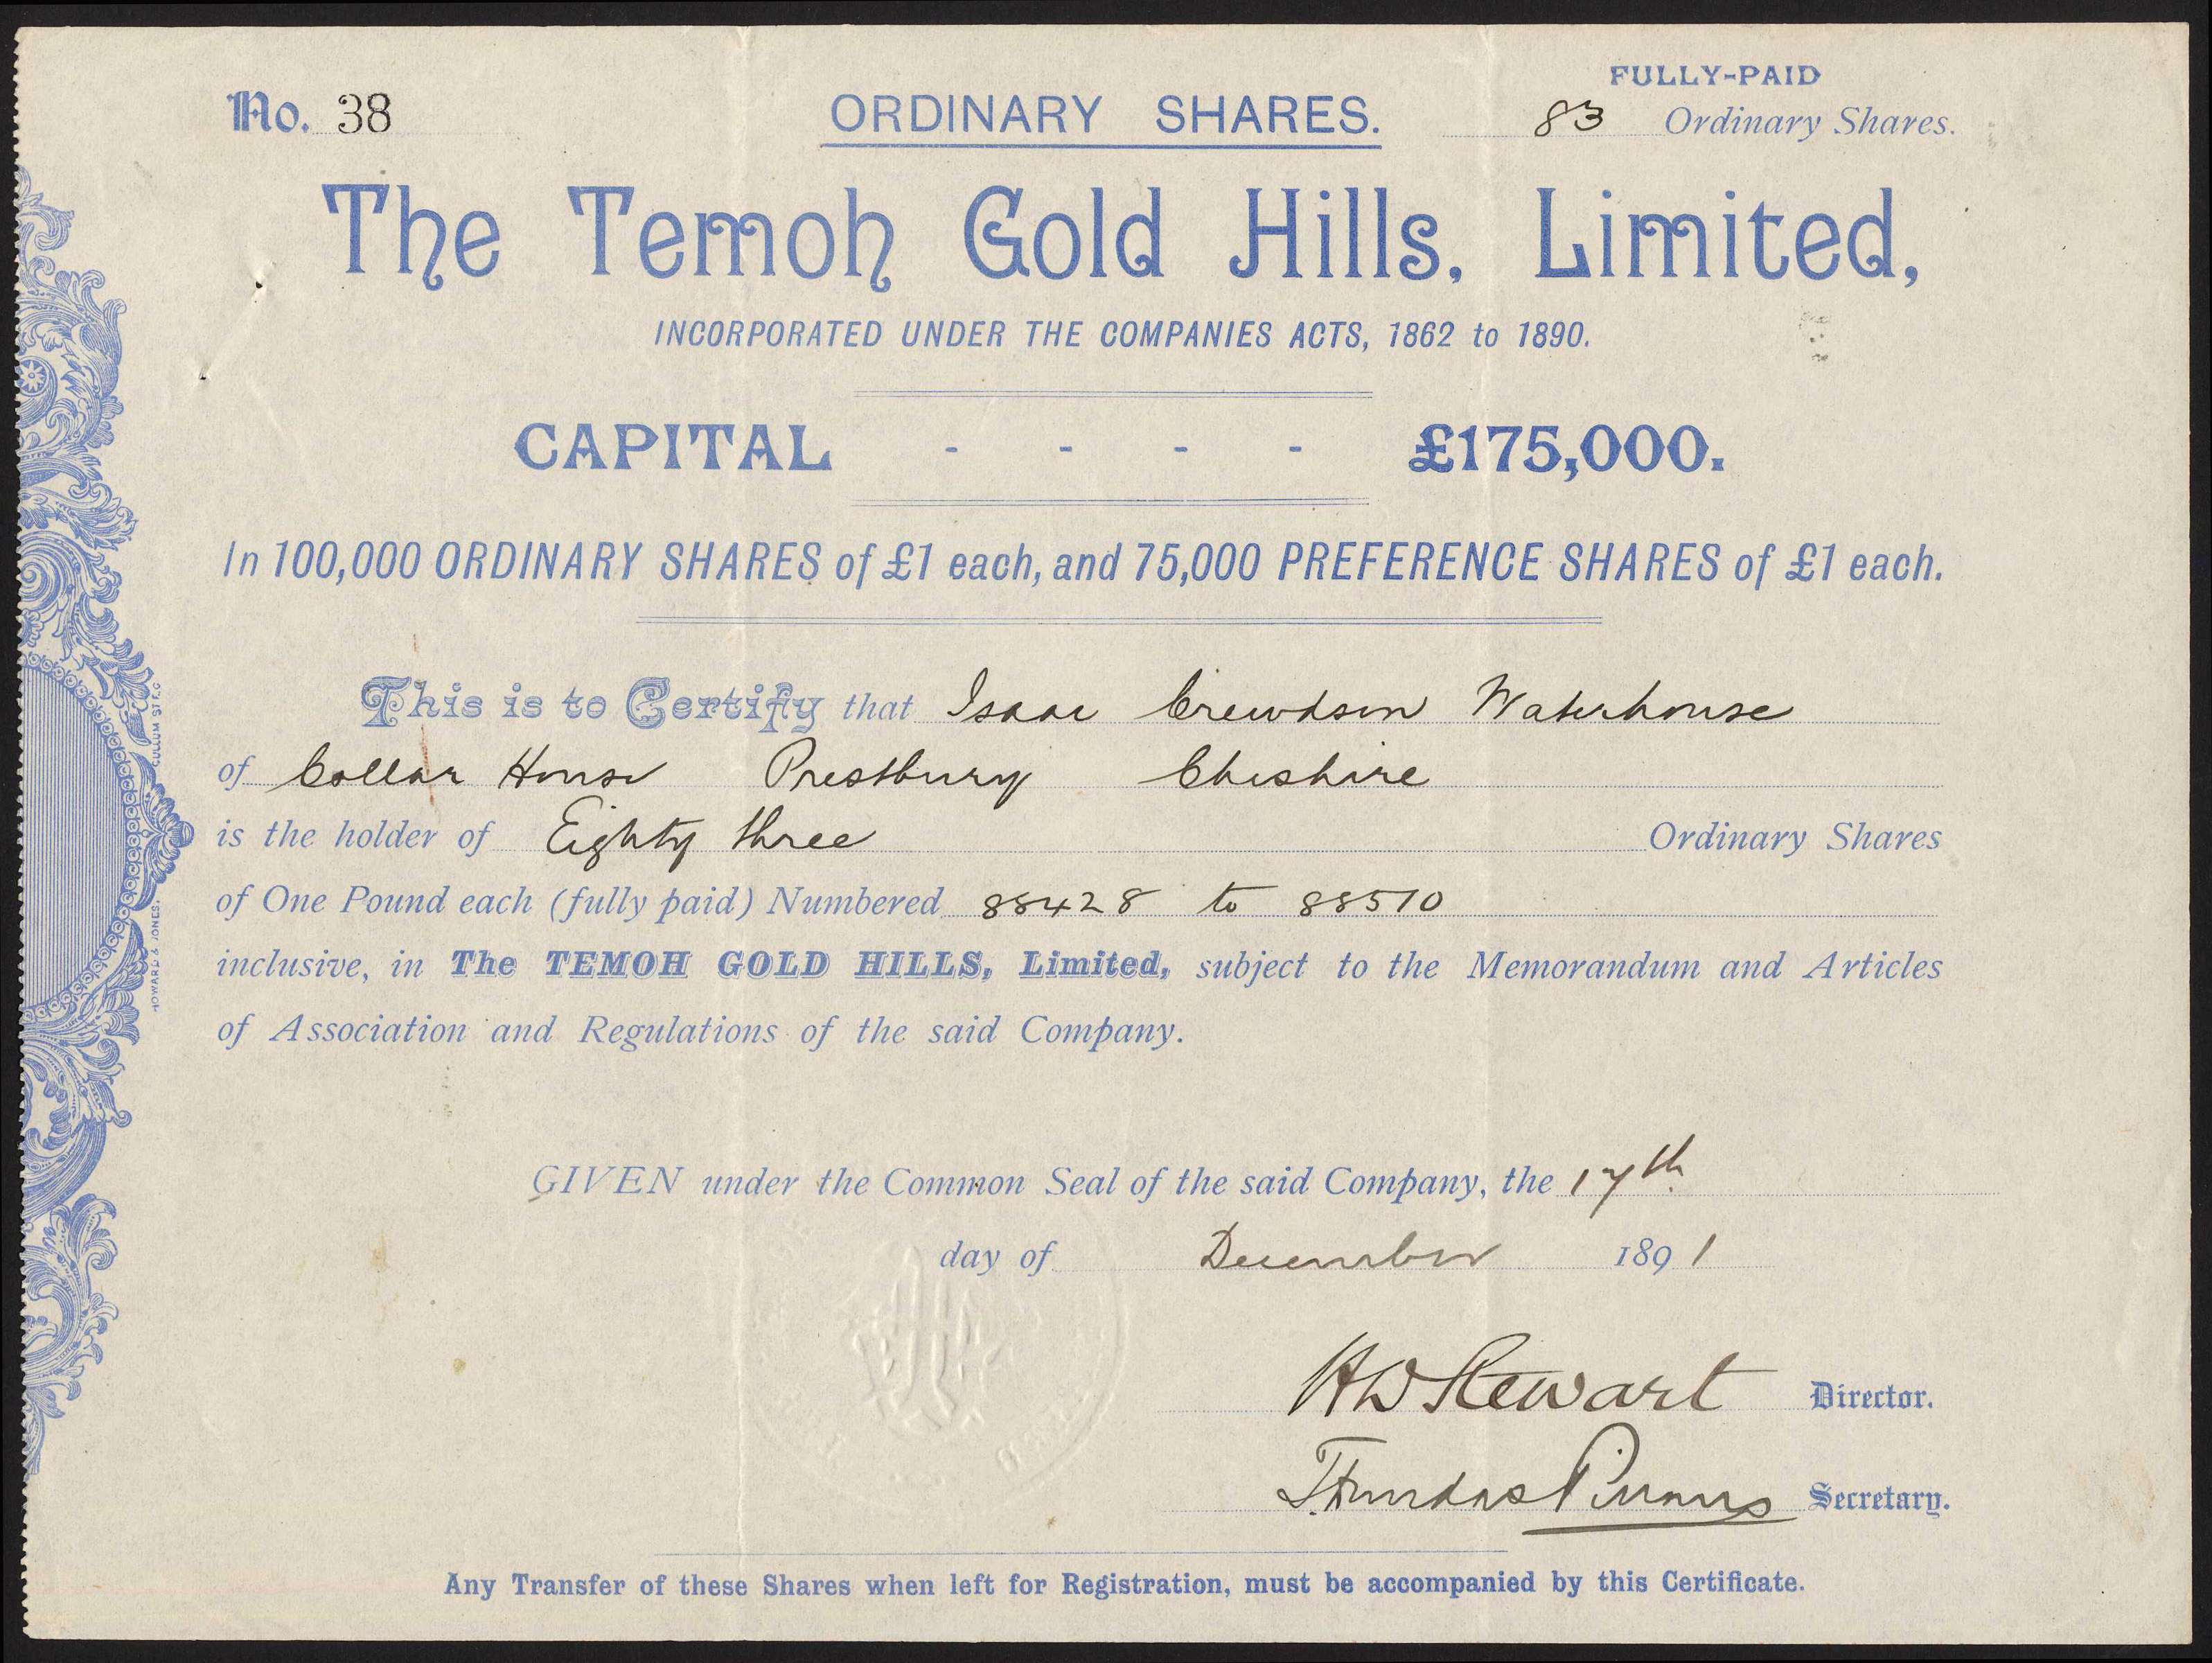 No. 38
ORDINARY SHARES.
FULLY-PAID
83 Ordinary Shares.
The Temoh Gold Hills, Limited,
INCORPORATED UNDER THE COMPANIES ACTS, 1862 to 1890.
CAPITAL - - - - £175,000.
In 100,000 ORDINARY SHARES of £1 each, and 75,000 PREFERENCE SHARES of £1 each.
This is to Certify that Isaac Crewdson Waterhouse
of Collar House Prestbury Cheshire
is the holder of Eighty three Ordinary Shares
of One Pound each (fully paid) Numbered 88428 to 88510
inclusive, in The TEMOH GOLD HILLS, Limited, subject to the Memorandum and Articles
of Association and Regulations of the said Company.
GIVEN under the Common Seal of the said Company, the 17th
day of December 1891
HD Stewart Director.
Secretary.
Any Transfer of these Shares when left for Registration, must be accompanied by this Certificate.
HOWARD & JONES.
CULLUM ST E.C